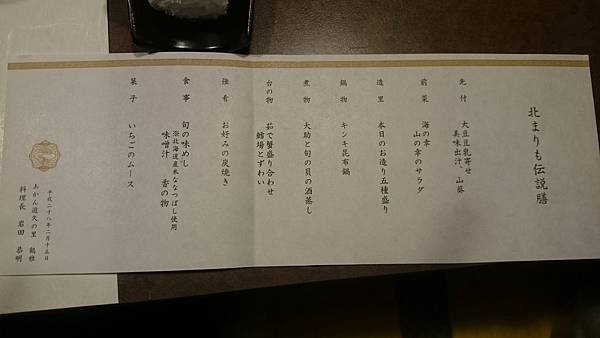 北まりも伝説膳
先付 大豆豆乳寄せ
美味出汁 山葵
前菜 海の幸
山の幸のサラダ
造里 本日のお造り五種盛り
鍋物 キンキ昆布鍋
煮物 大助と旬の貝の酒蒸し
台の物 茹で蟹盛り合わせ
鱈場とずわい
強肴 お好みの炭焼き
食事 旬の味めし
※北海道産米ななつぼし使用
味噌汁 香の物
菓子 いちごのムース
平成二十八年二月十五日
あかん遊久の里 鶴雅
料理長 岩田 恭明